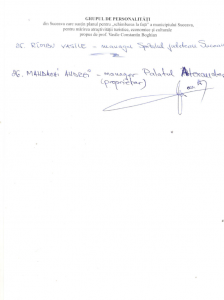 GRUPUL DE PERSONALITĂȚI
din Suceava care susțin planul pentru „schimbarea la față” a municipiului Suceava,
pentru mărirea atractivității turistice, economice și culturale
propus de prof. Vasile Constantin Boghian
25. RÎMBU VASILE – manager Spitalul județean Suceava
26. MANDACHI ANDREI – manager Palatul Alexandru
(proprietar)